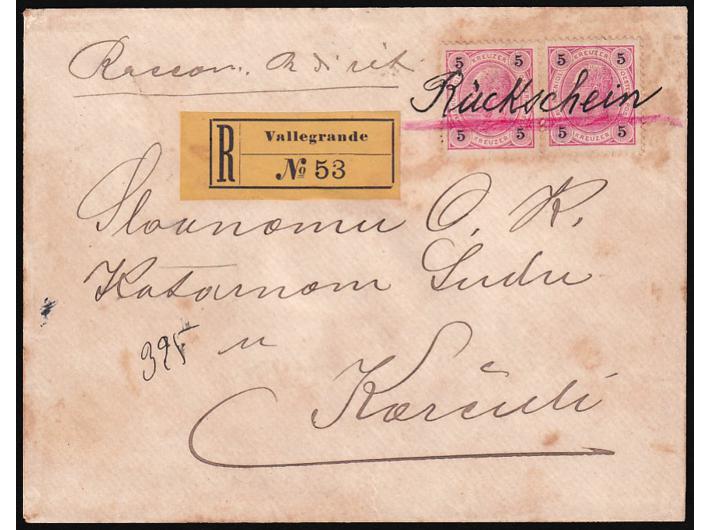 Raccom.
5 KREUZER 5 5 KREUZER 5
Rückschein
5 KREUZER 5 5 KREUZER 5
R Vallegrande
№ 53
Slavnomu C. K.
Kotarnom Sudu
u
395
Korčuli